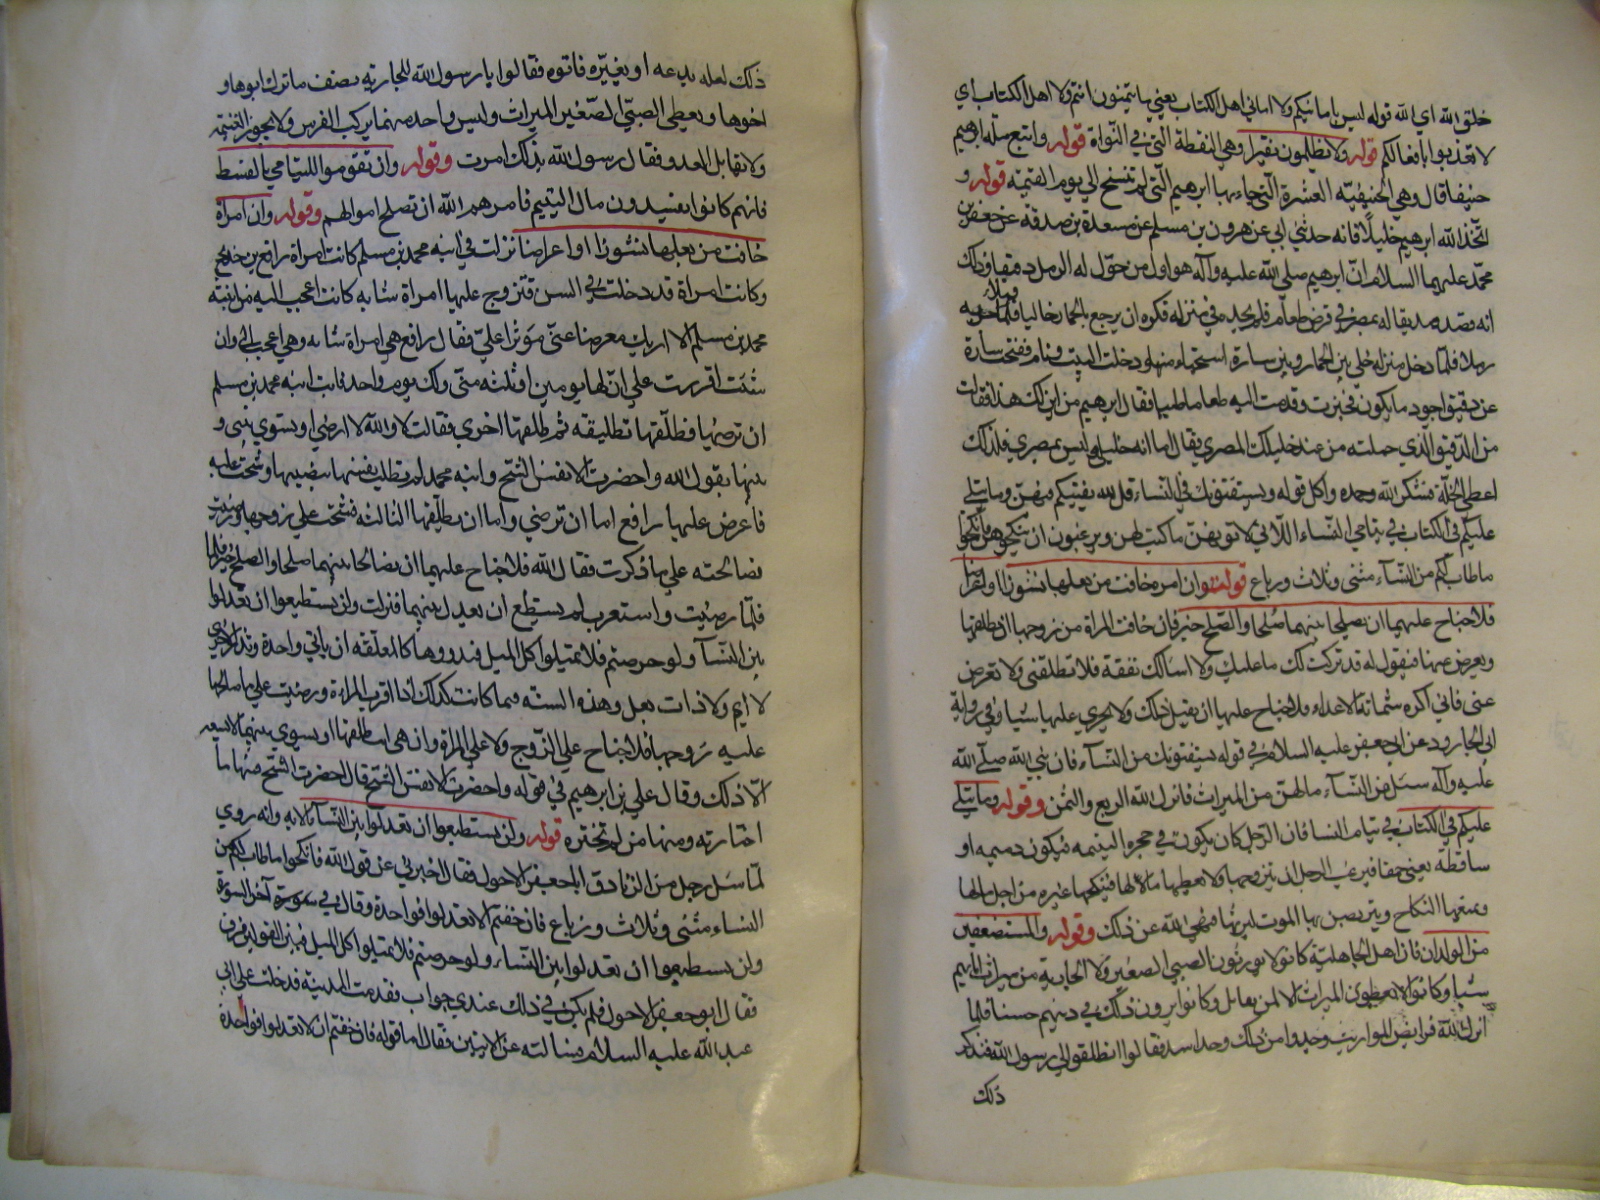 خلق الله اي الله قوله ليس بامانيكم ولا اماني اهل الكتاب يعني ما يتمنون انتم ولا اهل الكتاب اي
لا تعذبوا بافعالكم قوله ولا تظلمون نقيرا وهي النقطة التي في النواة قوله واتبع ملة ابرهيم
حنيفا قال وهي الحنيفيّة العشرة الّتي جاء بها ابرهيم الّتي لم تنسخ الي يوم القيمة قوله و
اتّخذ الله ابرهيم خليلًا فانه حدثني ابي عن هرون بن مسلم عن مسعدة بن صدقة عن جعفر بن
محمّد عليهما السلام انّ ابرهيم صلي الله عليه وآله هو اول من حوّل له الرمل دقيقا وذلك
انه قصد صديقا له بمصر في قرض طعام فلم يجده في منزله فكره ان يرجع بالحمار خاليا فملا جرابه
رملا فلمّا دخل منزله خلي بين الحمار وبين سارة استحياء منها ودخل البيت ونام ففتحت سارة
عن دقيق اجود ما يكون فخبزت وقدمت اليه طعاما طيبا فقال ابرهيم من اين لك هذا فقالت
من الدّقيق الّذي حملته من عند خليلك المصري فقال اما انه خليلي وليس بمصري فلذلك
اعطي الخلّة فشكر الله وحمده واكل قوله ويستفتونك في النّساء قل الله يفتيكم فيهنّ وما يتلي
عليكم في الكتاب في يتامي النّساء اللّاتي لا تؤتونهنّ ما كتب لهن وترغبون ان تنكحوهن فانكحوا
ما طاب لكم من النّساء مثني وثلاث ورباع قوله وان امرءة خافت من بعلها نشوزا او اعراضا
فلا جناح عليهما ان يصلحا بينهما صلحا والصّلح خير فان خافت المراة من زوجها ان يطلقها
ويعرض عنها فتقول له قد تركت لك ما عليك ولا اسالك نفقة فلا تطلقني ولا تعرض
عني فاني اكره شماتة الاعداء فلا جناح عليها ان يقبل ذلك ولا يجري عليها شيا وفي رواية
ابي الجارود عن ابي جعفر عليه السلام في قوله يستفتونك من النّساء فان نبي الله صلّي الله
عليه وآله سئل عن النّساء ما لهنّ من الميراث فانزل الله الربع والثمن وقوله وما يتلي
عليكم في الكتاب في يتامي النسا فان الرّجل كان يكون في حجره اليتيمه فيكون دميمه او
ساقطة يعني حمقا فيرغب الرجل ان يتزوجها ولا يعطيها مالها فينكحها غيره من اجل مالها
ويمنعها النكاح ويتربص بها الموت ليرثها فنهي الله عن ذلك وقوله والمستضعفين
من الولدان فان اهل الجاهليّة كانوا لا يورثون الصبي الصغير ولا الجارية من ميراث ابائهم
شيا وكانوا لا يعطون الميراث الا لمن يقاتل وكانوا يرون ذلك في دينهم حسنا فلمّا
انزل الله فرايض المواريث وجدوا من ذلك وجدا شديدا فقالوا انطلقوا الي رسول الله فنذكر
ذلك
ذلك لعله يدعه او يغيّره فاتوه فقالوا يا رسول الله للجارية نصف ما ترك ابوها و
اخوها ويعطي الصبّي الصّغير الميراث وليس واحد منهما يركب الفرس ولا يحوز الغنيمة
ولا يقاتل العدو فقال رسول الله بذلك امرت وقوله وان تقوموا لليتامي بالقسط
فانهم كانوا يفسدون مال اليتيم فامرهم الله ان تصلح اموالهم وقوله وان امراة
خافت من بعلها نشوزا او اعراضا نزلت في ابنة محمد بن مسلم كانت امراة رافع بن خديج
وكانت امراة قد دخلت في السن فتزوج عليها امراة شابه كانت اعجب اليه من ابنة
محمد بن مسلم الا اراك معرضا عنّي مؤثرا عليّ فقال رافع هي امراة شابه وهي اعجب الي وان
شئت اقررت علي انّ لها يومين او ثلثه منّي ولك يوم واحد فابت ابنه محمد بن مسلم
ان ترضيها فطلّقها تطليقه ثم طلقها اخري فقالت لا والله لا ارضي او يسوي بيني و
بينها يقول الله واحضرت الانفس الشّح وابنه محمد لم تطلب نفسها بنصيبها وشحّت عليه
فاعرض عليها رافع اما ان ترضي واما ان يطلّقها الثالثه فشحّت علي زوجها ورضيت
فصالحته علي ما ذكرت فقال الله فلا جناح عليهما ان يصالحا بينهما صلحا والصلح خير فلما
فلمّا رضيت واستعرت لم يستطع ان يعدل بينهما فنزلت ولن يستطيعوا ان تعدلوا
بين النّسآ ولو حرصتم فلا تميلوا كل الميل فتذروها كالمعلقه ان ياتي واحدة وتذر الاخري
لا ايم ولا ذات بعل وهذه السنّه فيما كانت كذلك اذا اقرت المراءة ورضيت علي ما صالحها
عليه زوجها فلا جناح علي الزّوج ولا علي المراة وان هي ابت طلقها او يسوي بينهما لا يسعه
الّا ذلك وقال علي بن ابرهيم في قوله واحضرت الانفس الشّح قال احضرت الشح منها ما
اختارته ومنها من لم تختره قوله ولن يستطيعوا ان تعدلوا بين النّسآ الايه وانه روي
لمّا سئل رجل من الزنادقه ابا جعفر الاحول فقال اخبرني عن قول الله فانكحوا ما طاب لكم من
النساء مثني وثلاث ورباع فان خفتم الا تعدلوا فواحدة وقال في سورة آخر السورة
ولن يستطيعوا ان تعدلوا بين النّساء ولو حرصتم فلا تميلوا كل الميل فبين القولين فرق
فقال ابو جعفر الاحول فلم يكن في ذلك عندي جواب فقدمت المدينة فدخلت علي ابي
عبد الله عليه السلام فسالته عن الايتين فقال اما قوله فان خفتم ان لا تعدلوا فواحدة